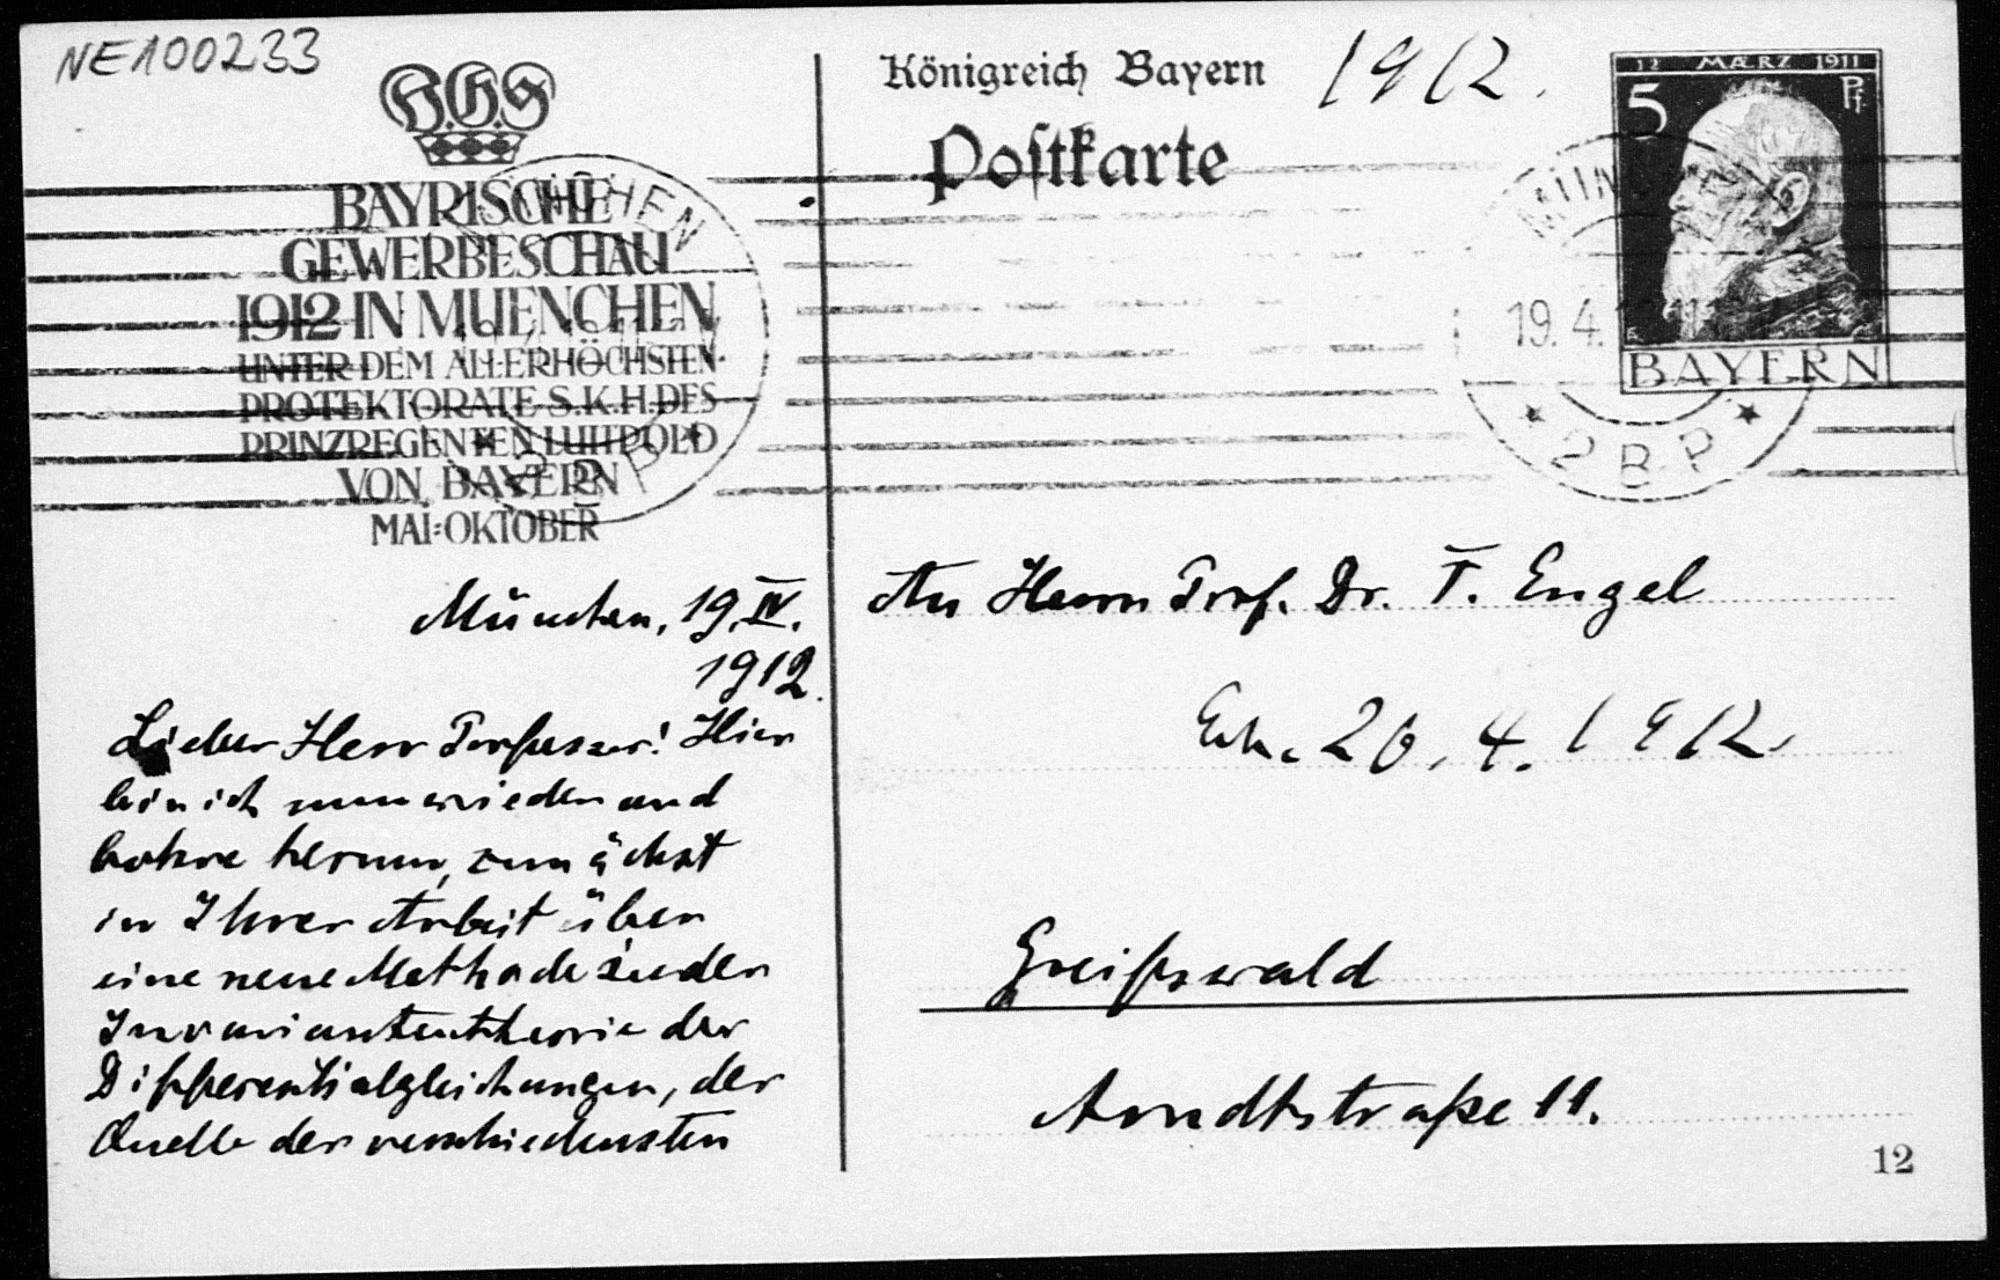 NE100233
B.G.S
BAYRISCHE
GEWERBESCHAU
1912 IN MUENCHEN
UNTER DEM ALLERHÖCHSTEN
PROTEKTORATE S.K.H. DES
PRINZREGENTEN LUITPOLD
VON BAYERN
MAI-OKTOBER
München, 19. IV.
1912.
Lieber Herr Professor! Hier
bin ich nun wieder und
bohre herum, zunächst
in Ihrer Arbeit über
eine neue Methode in der
Invariantentheorie der
Differentialgleichungen, der
Quelle der verschiedensten
Königreich Bayern 1912.
Postkarte
12 MÆRZ 1911
5 Pf.
BAYERN
MÜNCHEN
19. 4.
2 B.P.
An Herrn Prof. Dr. F. Engel
Erh. 20. 4. 1912.
Greifswald
Arndtstraße 11.
12